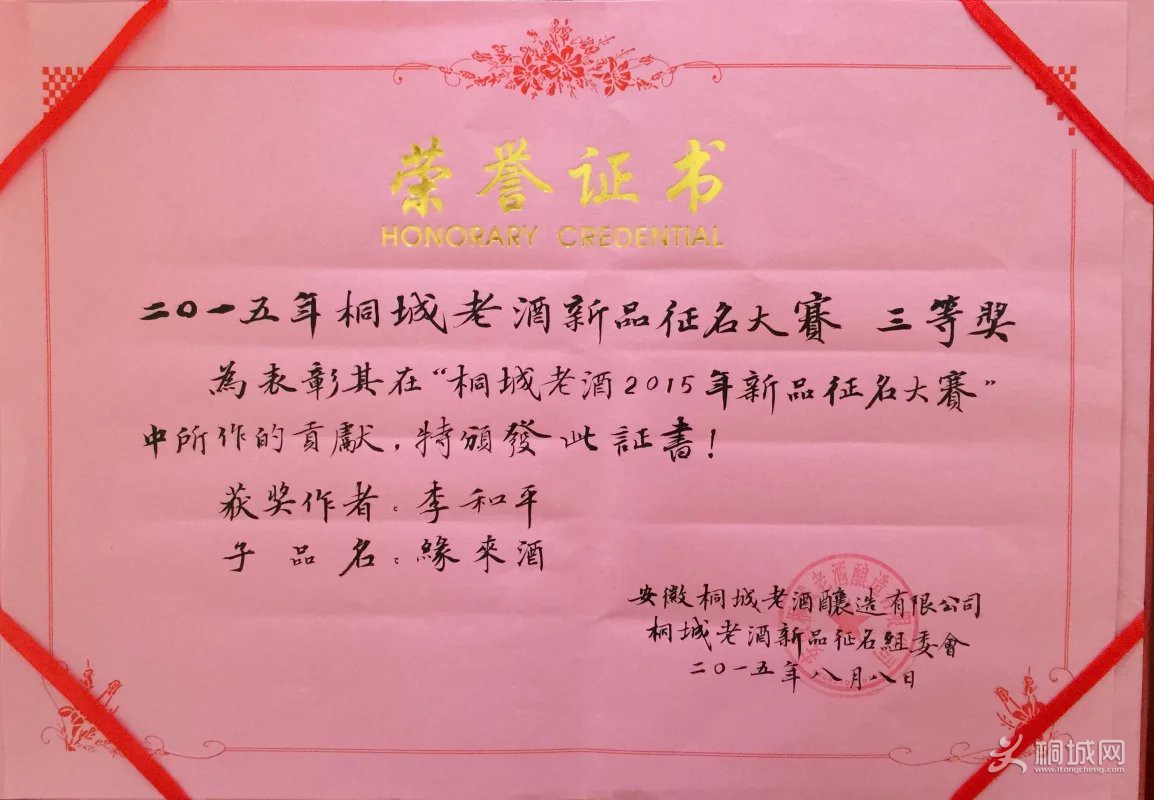 荣誉证书
HONORARY CREDENTIAL
二〇一五年桐城老酒新品征名大賽 三等奖
為表彰其在“桐城老酒2015年新品征名大賽”
中所作的貢獻，特頒發此証書！
获奖作者：李和平
子品名：緣來酒
安徽桐城老酒釀造有限公司
桐城老酒新品征名組委會
二〇一五年八月八日
桐城网
www.itongcheng.com